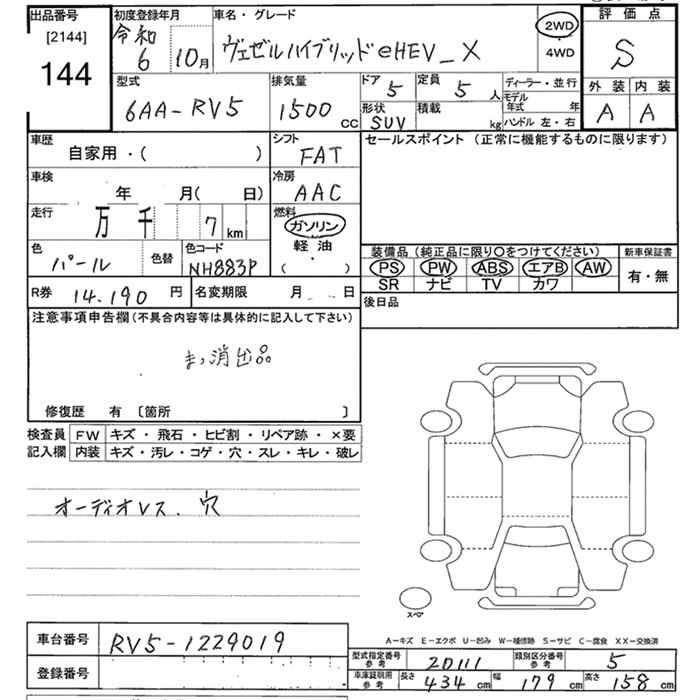 出品番号 初度登録年月 車名・グレード 評価点
[2144] 令和 2WD
144 6 10月 ヴェゼルハイブリッドeHEV_X 4WD S
型式 排気量 ドア 5 定員 5 人 ディーラー・並行 外装 内装
6AA-RV5 1500 CC 形状 SUV 積載 kg モデル年式 年 A A
ハンドル 左・右
車歴 自家用・( ) シフト FAT セールスポイント (正常に機能するものに限ります)
車検 年 月( 日) 冷房 AAC
走行 万 千 7 km 燃料 ガソリン
軽油
( )
色 パール 色替 色コード NH883P
装備品 (純正品に限り○をつけてください) 新車保証書
PS PW ABS エアB AW 有・無
SR ナビ TV カワ
R券 14,190 円 名変期限 月 日 後日品
注意事項申告欄 (不具合内容等は具体的に記入して下さい)
修復歴 有 〔箇所 〕
検査員 FW キズ・飛石・ヒビ割・リペア跡・×要
記入欄 内装 キズ・汚レ・コゲ・穴・スレ・キレ・破レ
オーディオレス、穴
スペア
A-キズ E-エクボ U-凹み W-補修跡 S-サビ C-腐食 XX-交換済
車台番号 RV5-1229019
登録番号
型式指定番号 参考 20111 類別区分番号 参考 5
車庫証明用 参考 長さ 434 cm 幅 179 cm 高さ 158 cm